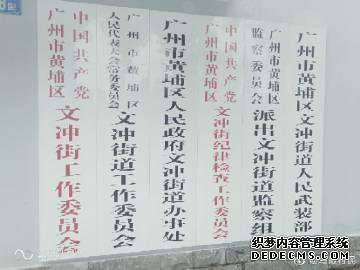 中国共产党
广州市黄埔区
文冲街工作委员会
广州市黄埔区
人民代表大会常务委员会
文冲街道工作委员会
广州市黄埔区人民政府文冲街道办事处
中国共产党
广州市黄埔区
文冲街纪律检查工作委员会
广州市黄埔区
监察委员会
派出文冲街道监察组
广州市黄埔区文冲街道人民武装部
织梦内容管理系统
DEDECMS.COM